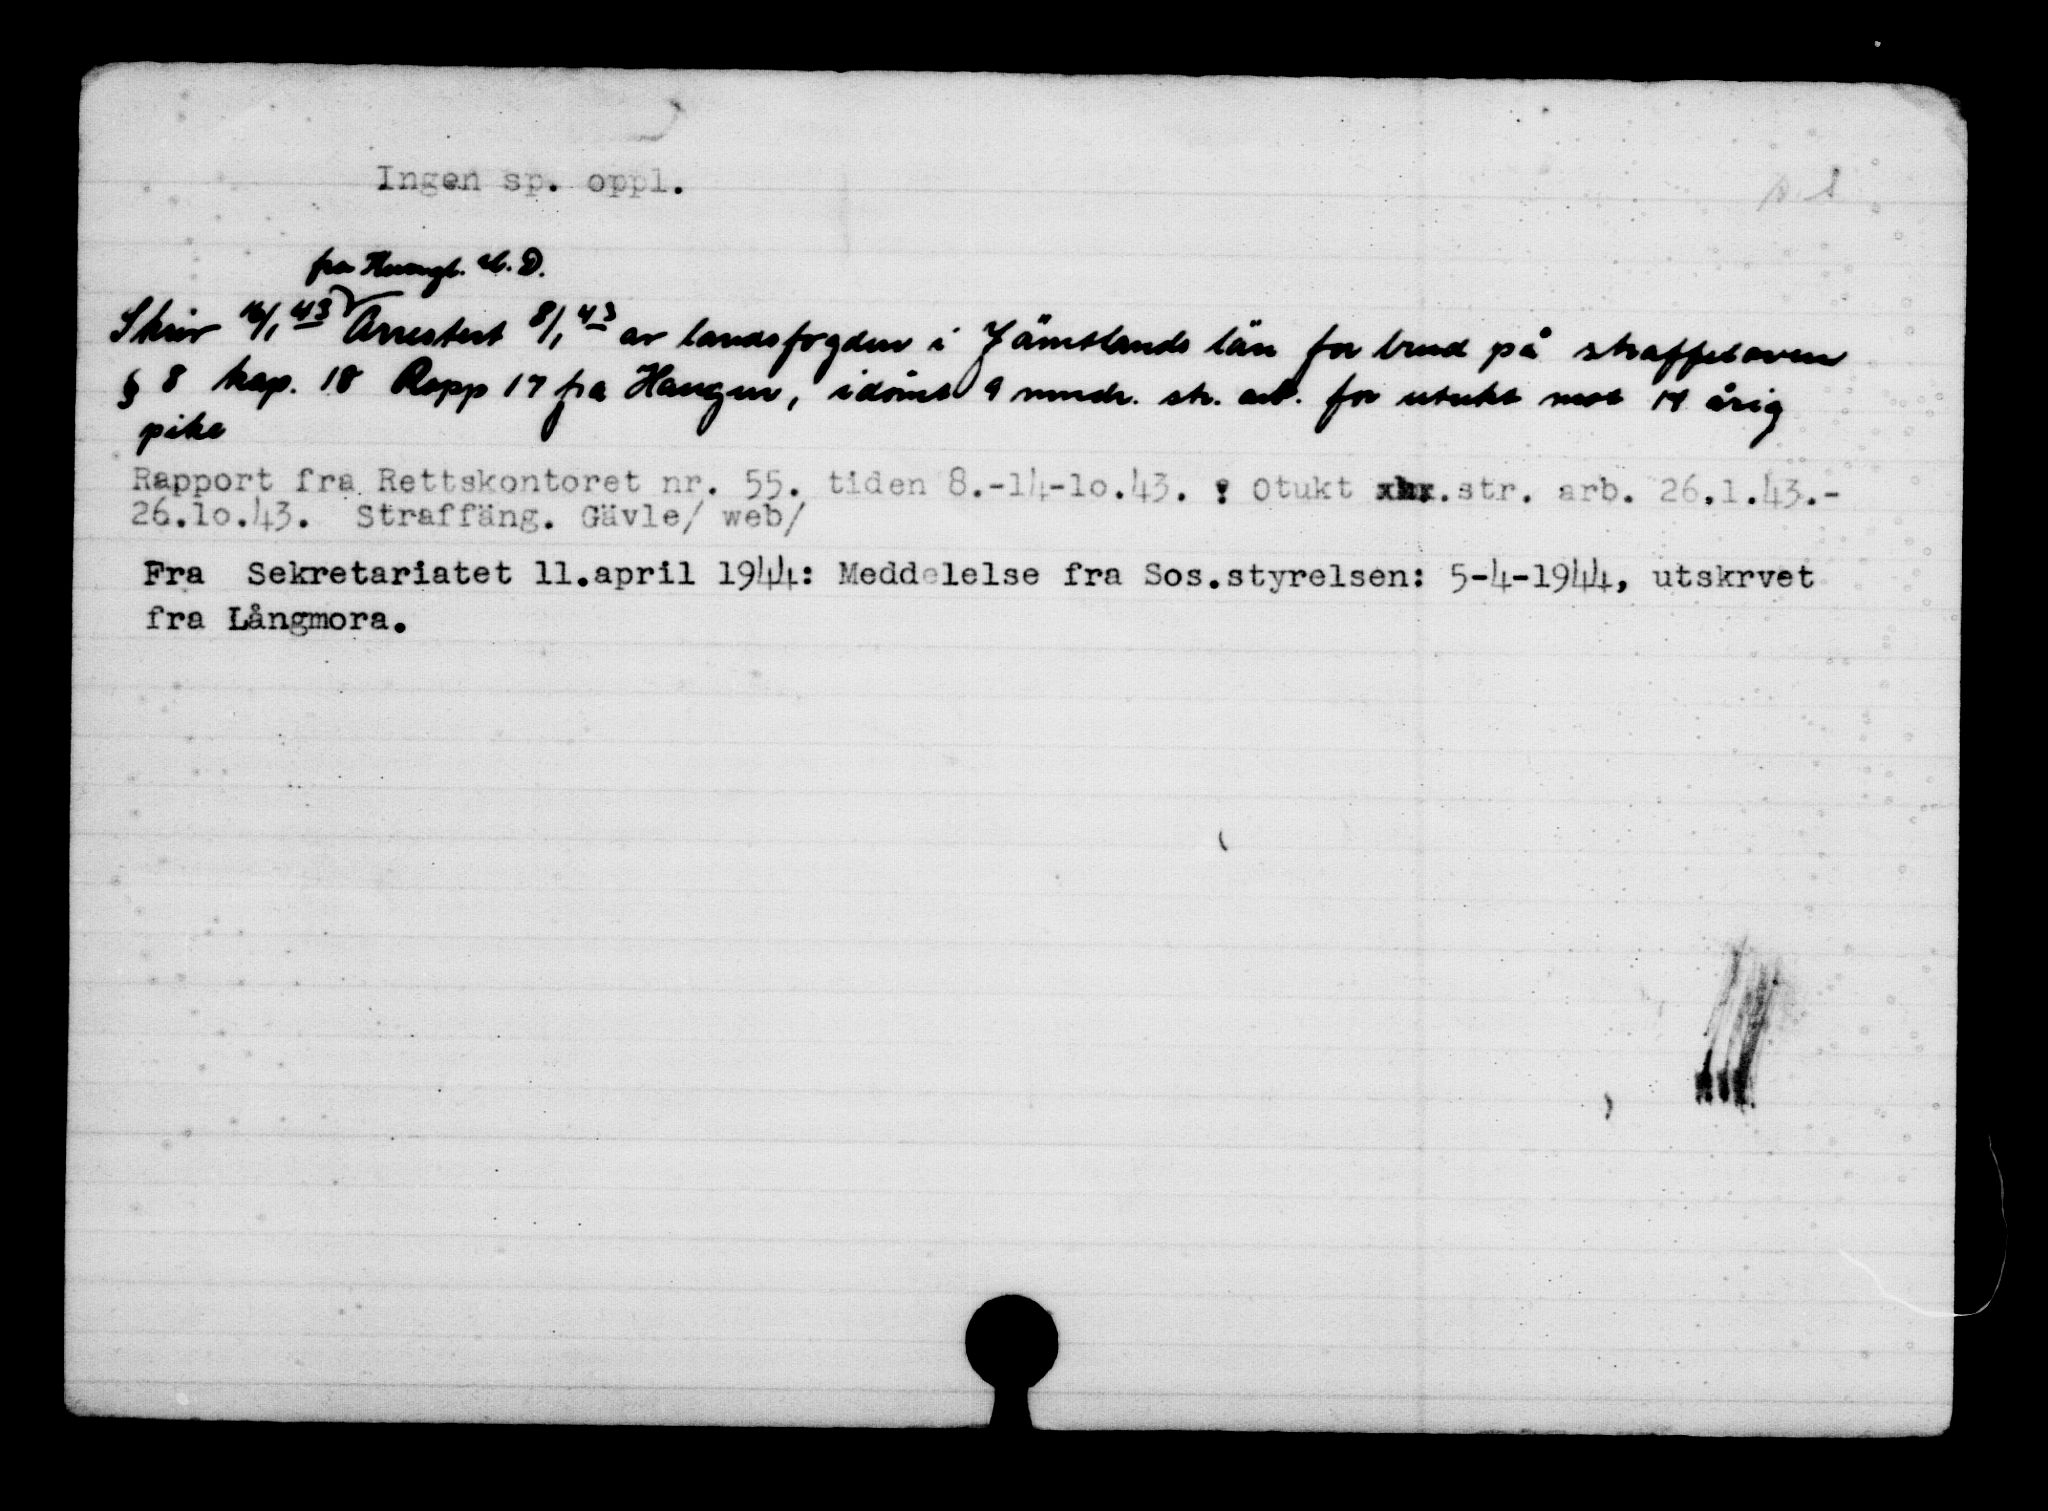 Ingen sp. oppl.
fra Kungl. U.D.
Skriv 16/1 43 Arrestert 8/1 43 av landsfogden i Jämtlands län for brud på straffeloven
§ 8 kap. 18 Rapp 17 fra Haugen, idømt 9 mndr. str. arb. for utukt mot 14 årig
pike
Rapport fra Rettskontoret nr. 55. tiden 8.-14-10.43. : Otukt xxx.str. arb. 26.1.43.-
26.10.43. Straffäng. Gävle/ web/
Fra Sekretariatet 11.april 1944: Meddelelse fra Sos.styrelsen: 5-4-1944, utskrvet
fra Långmora.